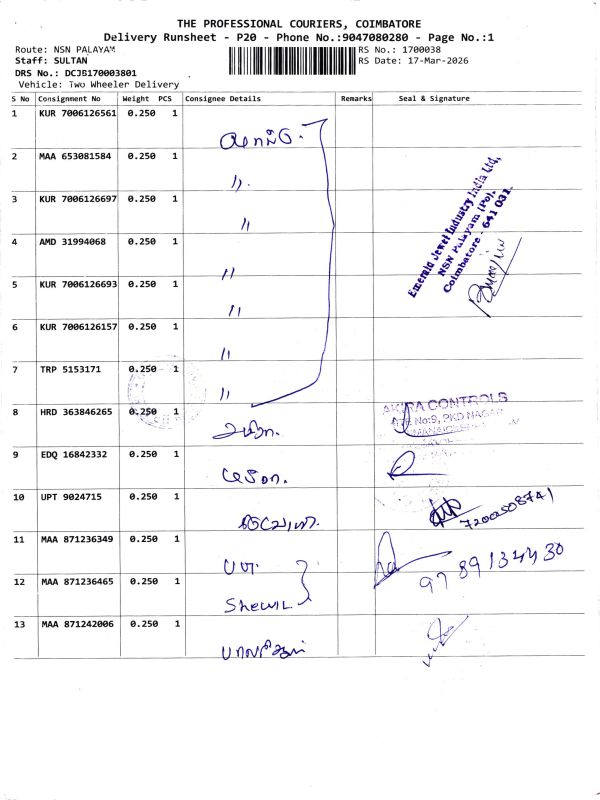 THE PROFESSIONAL COURIERS, COIMBATORE
Delivery Runsheet - P20 - Phone No.:9047080280 - Page No.:1
Route: NSN PALAYAM
RS No.: 1700038
Staff: SULTAN
RS Date: 17-Mar-2026
DRS No.: DCJB170003801
Vehicle: Two Wheeler Delivery
S No Consignment No Weight PCS Consignee Details Remarks Seal & Signature
1 KUR 7006126561 0.250 1
2 MAA 653081584 0.250 1 "
3 KUR 7006126697 0.250 1 "
4 AMD 31994068 0.250 1 "
5 KUR 7006126693 0.250 1 "
6 KUR 7006126157 0.250 1 "
7 TRP 5153171 0.250 1 "
Emerald Jewel Industry India Ltd,
NSN Palayam (Po),
Coimbatore - 641 031.
8 HRD 363846265 0.250 1
AKIRA CONTROLS
No:9, PKD NAGAR
9 EDQ 16842332 0.250 1
10 UPT 9024715 0.250 1 7200508741
11 MAA 871236349 0.250 1
12 MAA 871236465 0.250 1
9789134430
13 MAA 871242006 0.250 1